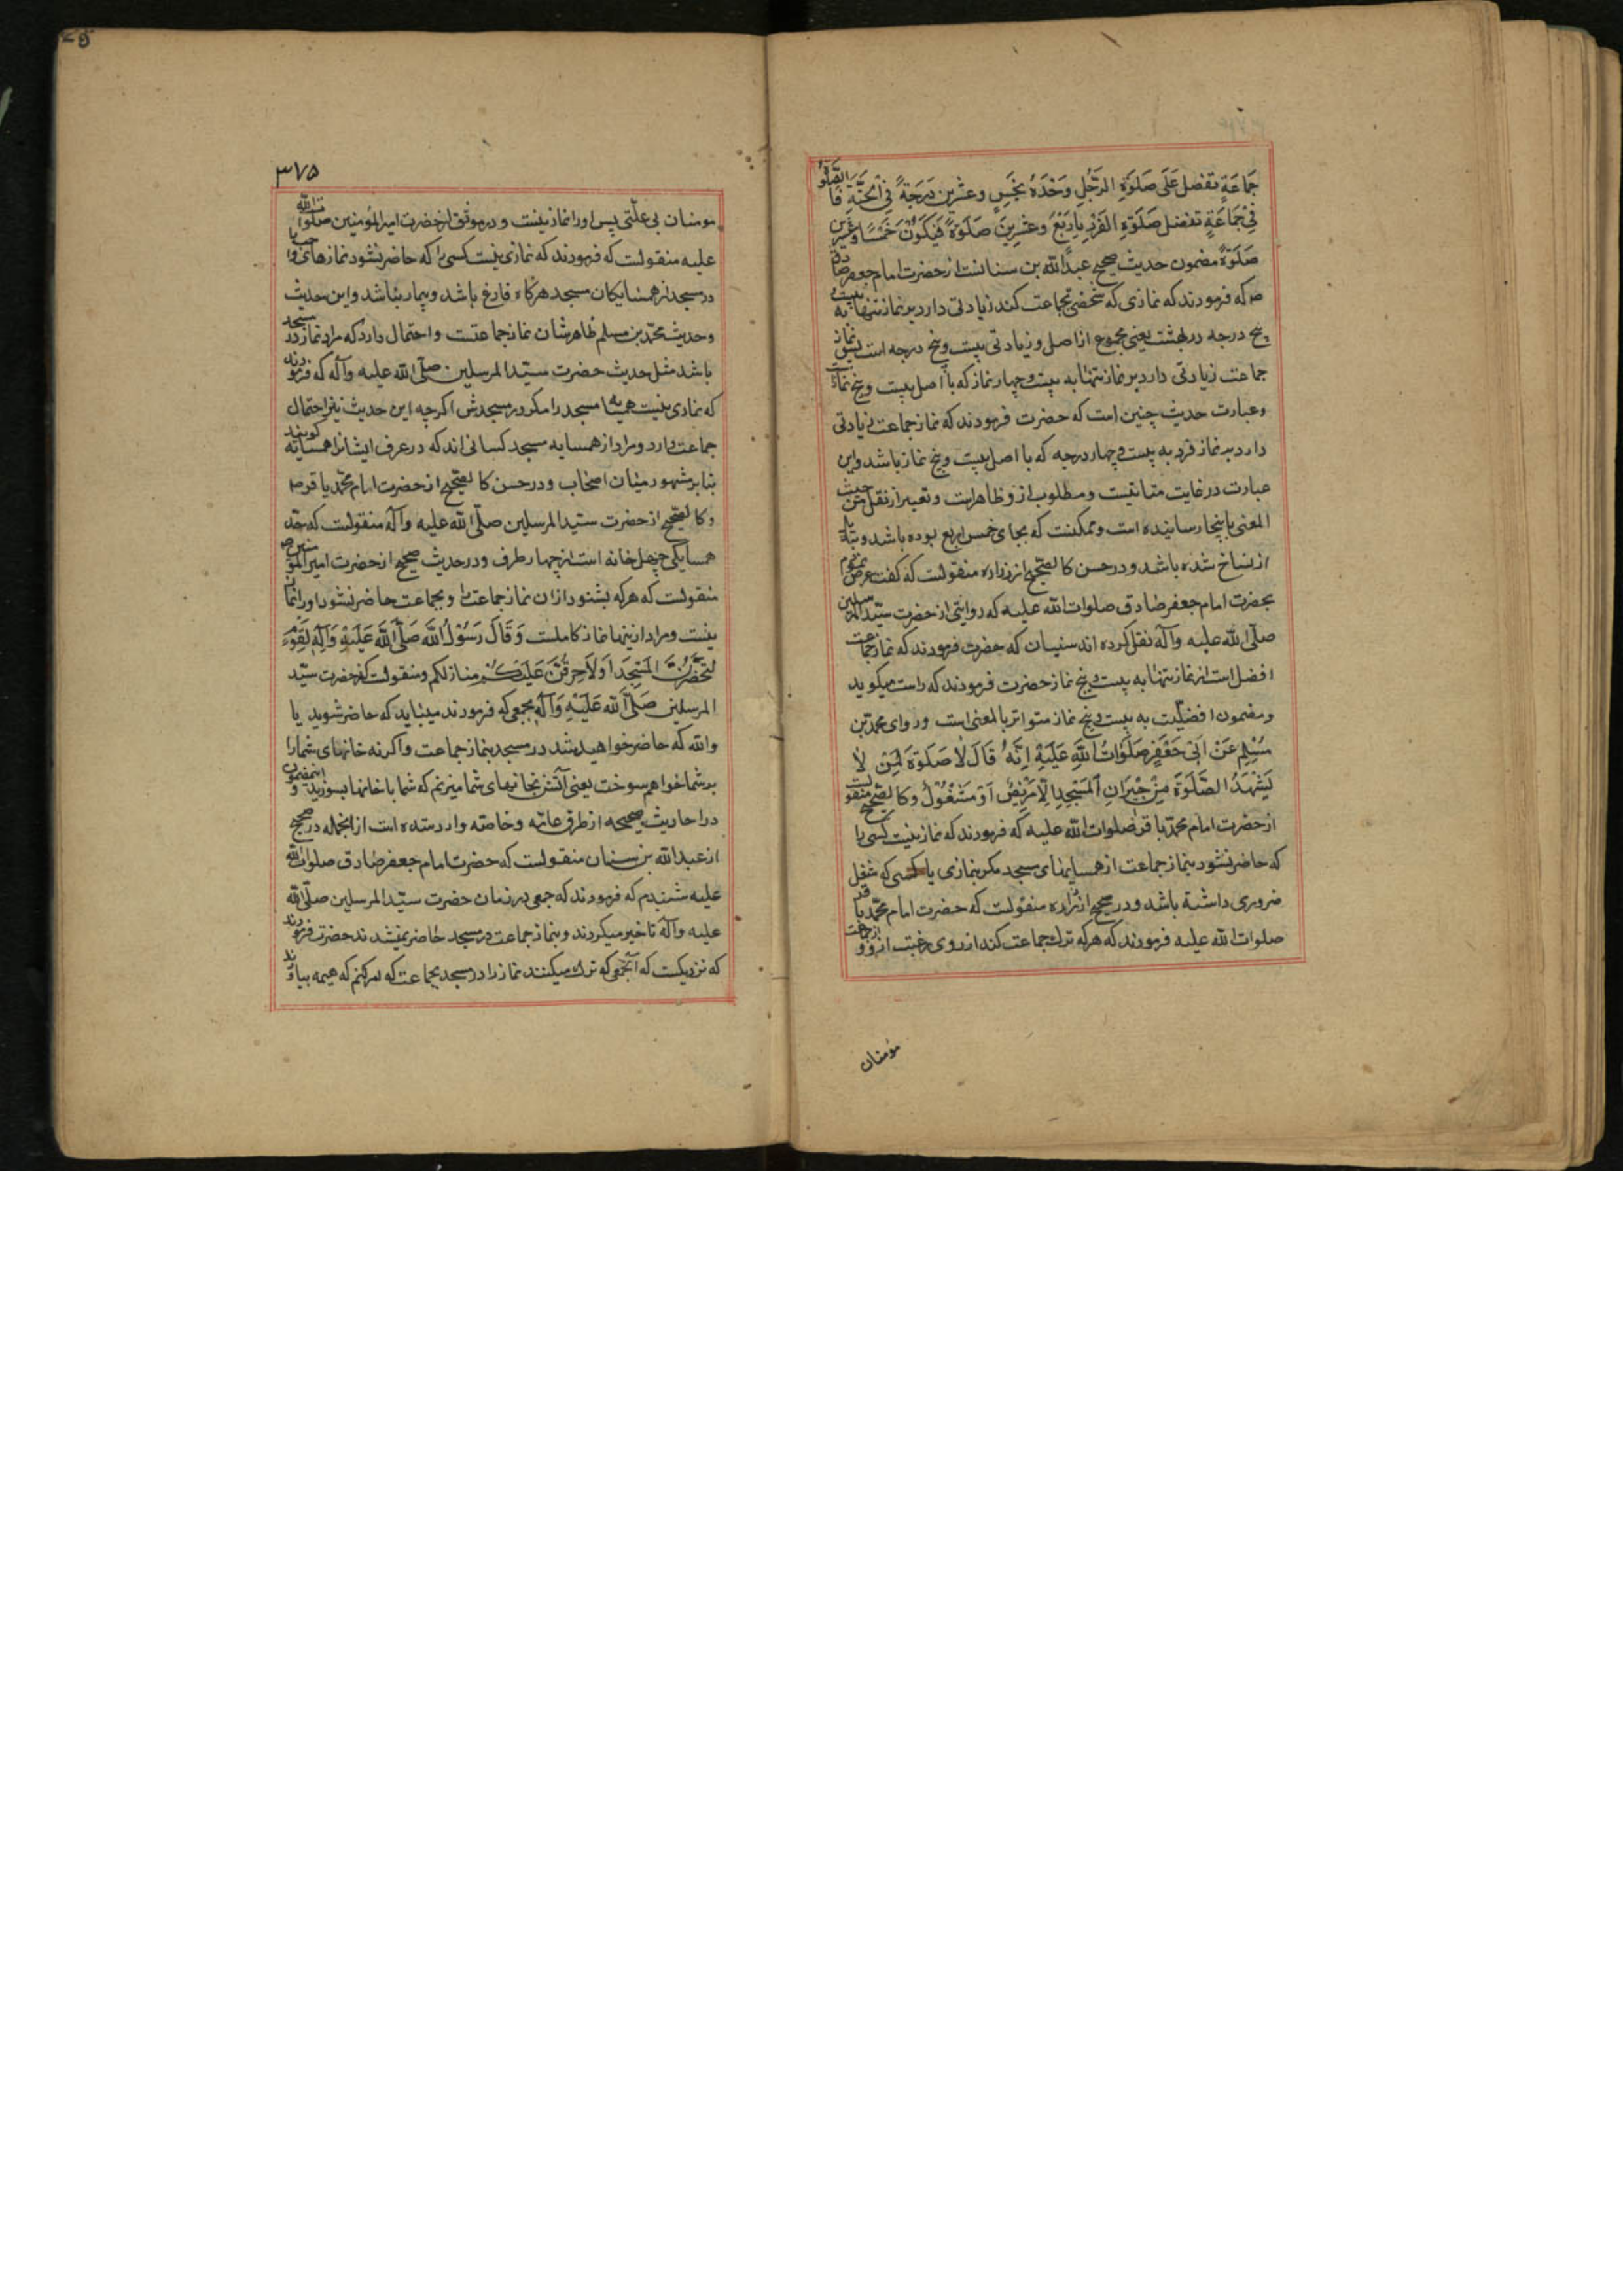 جَمَاعَةٍ تفضل عَلَى صَلَوةِ الرَّجُلِ وَحْدَهُ بخَمسٍ وعشرين دَرَجَةً فِي الْجَنَّةِ فَالصَّلوةُ
فِيْ جَمَاعَةٍ تفضل صَلَوةِ الفَرْدِ بِاَرْبَعٍ وعشرِينَ صَلَوةً فَيَكُوْنُ خَمْسًا وعشرين
صَلَوةً مضمون حديث صحيح عبدالله بن سنانست از حضرت امام جعفر صادق
ص که فرمودند که نمازی که شخصی بجماعت کند زیادتی دارد بر نماز تنها به بیست و
پنج درجه در بهشت یعنی مجموع از اصل و زیادتی بیست و پنج درجه است پس نماز
جماعت زیادتی دارد بر نماز تنها به بیست و چهار نماز که با اصل بیست و پنج نماز است
و عبارت حدیث چنین است که حضرت فرمودند که نماز جماعت زیادتی
دارد بر نماز فرد به بیست و چهار درجه که با اصل بیست و پنج نماز باشد و این
عبارت در غایت متانتست و مطلوب ازو ظاهر است و تعبیر از نقل حدیث
المعنی باینجا رسانیده است و ممکنست که بجای خمس اربع بوده باشد و
از نساخ شده باشد و در حسن کالصحیح از زراره منقولست که گفت عرض نمودم
بحضرت امام جعفر صادق صلوات الله علیه که روایتی از حضرت سیّد المرسلین
صلّی الله علیه وآله نقل کرده اند سنیان که حضرت فرمودند که نماز جماعت
افضل است از نماز تنها به بیست و پنج نماز حضرت فرمودند که راست میکویند
و مضمون افضلیت به بیست و پنج نماز متواتر بالمعنی است وروای محمّد بن
مُسْلِمٍ عَنْ اَبِیْ جَعْفَرٍ صَلَوَاتُ اللهِ عَلَیْهِ اِنَّهُ قَالَ لَا صَلَوةَ لِمَنْ لَا
یَشْهَدُ الصَّلَوةَ مِنْ جِیْرَانِ الْمَسْجِدِ اِلَّا مَرِیْضٌ اَوْ مَشْغُوْلٌ وکالصحیح منقولست
از حضرت امام محمّد باقر صلوات الله علیه که فرمودند که نماز نیست کسی را
که حاضر نشود بنماز جماعت از همسایهای مسجد مکر بیماری یا کسی که شغل
ضروری داشته باشد و در صحیح از زراره منقولست که حضرت امام محمّد باقر
صلوات الله علیه فرمودند که هر که ترك جماعت کند از روی رغبت ازو و از جماعت
مؤمنان
۳۷۵
مومنان بی علّتی پس اورا نماز نیست و در موثق از حضرت امیر المؤمنین صلوات الله
علیه منقولست که فرمودند که نمازی نیست کسی را که حاضر نشود نمازهای واجب را
در مسجد از همسایکان مسجد هرکاه فارغ باشد و بیمار نباشد و این حدیث
و حدیث محمّد بن مسلم ظاهرشان نماز جماعتست و احتمال دارد که مراد نماز در مسجد
باشد مثل حدیث حضرت سیّد المرسلین صلّی الله علیه وآله که فرمودند
که نمازی نیست همسایه مسجد را مکر در مسجدش اکرچه این حدیث نیز احتمال
جماعت دارد و مراد از همسایه مسجد کسانی اند که در عرف ایشانرا همسایه کویند
بنابر مشهور میان اصحاب و در حسن کالصحیح از حضرت امام محمّد باقر ص
وکالصحیح از حضرت سیّد المرسلین صلّی الله علیه وآله منقولست که حدّ
همسایکی چهل خانه است از چهار طرف و در حدیث صحیح از حضرت امیر المؤمنین ص
منقولست که هر که بشنود اذان نماز جماعت را و بجماعت حاضر نشود اورا نماز
نیست و مراد ازینها نماز کاملست وَقَالَ رَسُوْلُ اللهِ صَلَّی اللهُ عَلَیْهِ وَآلِهِ لِقَوْمٍ
لَتَحْضُرُنَّ الْمَسْجِدَ اَوْ لَاُحْرِقَنَّ عَلَیْکُمْ منازلکم و منقولست که حضرت سیّد
المرسلین صَلَّی اللهُ عَلَیْهِ وَآلِهِ بجمعی که فرمودند میباید که حاضر شوید یا
والله که حاضر خواهید شد در مسجد بنماز جماعت و اکرنه خانهای شمارا
بر شما خواهم سوخت یعنی آتش بخانهای شما میزنم که شما با خانها بسوزید و اینمضمون
در احادیث صحیحه از طرق عامّه و خاصّه وارد شده است از انجمله در صحیح
از عبدالله بن سنان منقولست که حضرت امام جعفر صادق صلوات الله
علیه شنیدم که فرمودند که جمعی در زمان حضرت سیّد المرسلین صلّی الله
علیه وآله تاخیر میکردند و بنماز جماعت در مسجد حاضر نمیشدند حضرت فرمودند
که نزدیکست که آنجمعی که ترك میکنند نماز را در مسجد بجماعت که امر کنم که هیمه بیاورند